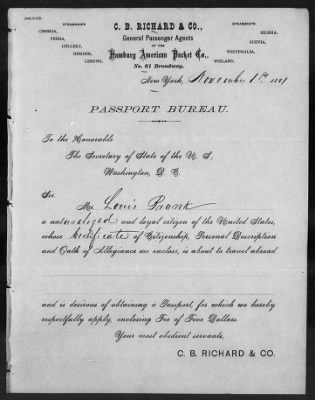 C. B. RICHARD & CO.,
General Passenger Agents
OF THE
Hamburg American Packet Co.,
No. 61 Broadway.
STEAMSHIPS
CIMBRIA,
FRISIA,
GELLERT,
HERDER,
LESSING,
STEAMSHIPS
SILESIA,
SUEVIA,
WESTPHALIA,
WIELAND.
New York, November 1st 1881
PASSPORT BUREAU.
To the Honorable
The Secretary of State of the U. S,
Washington, D. C.
Sir.
Mr Louis
a naturalized and loyal citizen of the United States,
whose Certificate of Citizenship, Personal Description
and Oath of Allegiance we enclose, is about to travel abroad
and is desirous of obtaining a Passport, for which we hereby
respectfully apply, enclosing Fee of Five Dollars.
Your most obedient servants,
C. B. RICHARD & CO.